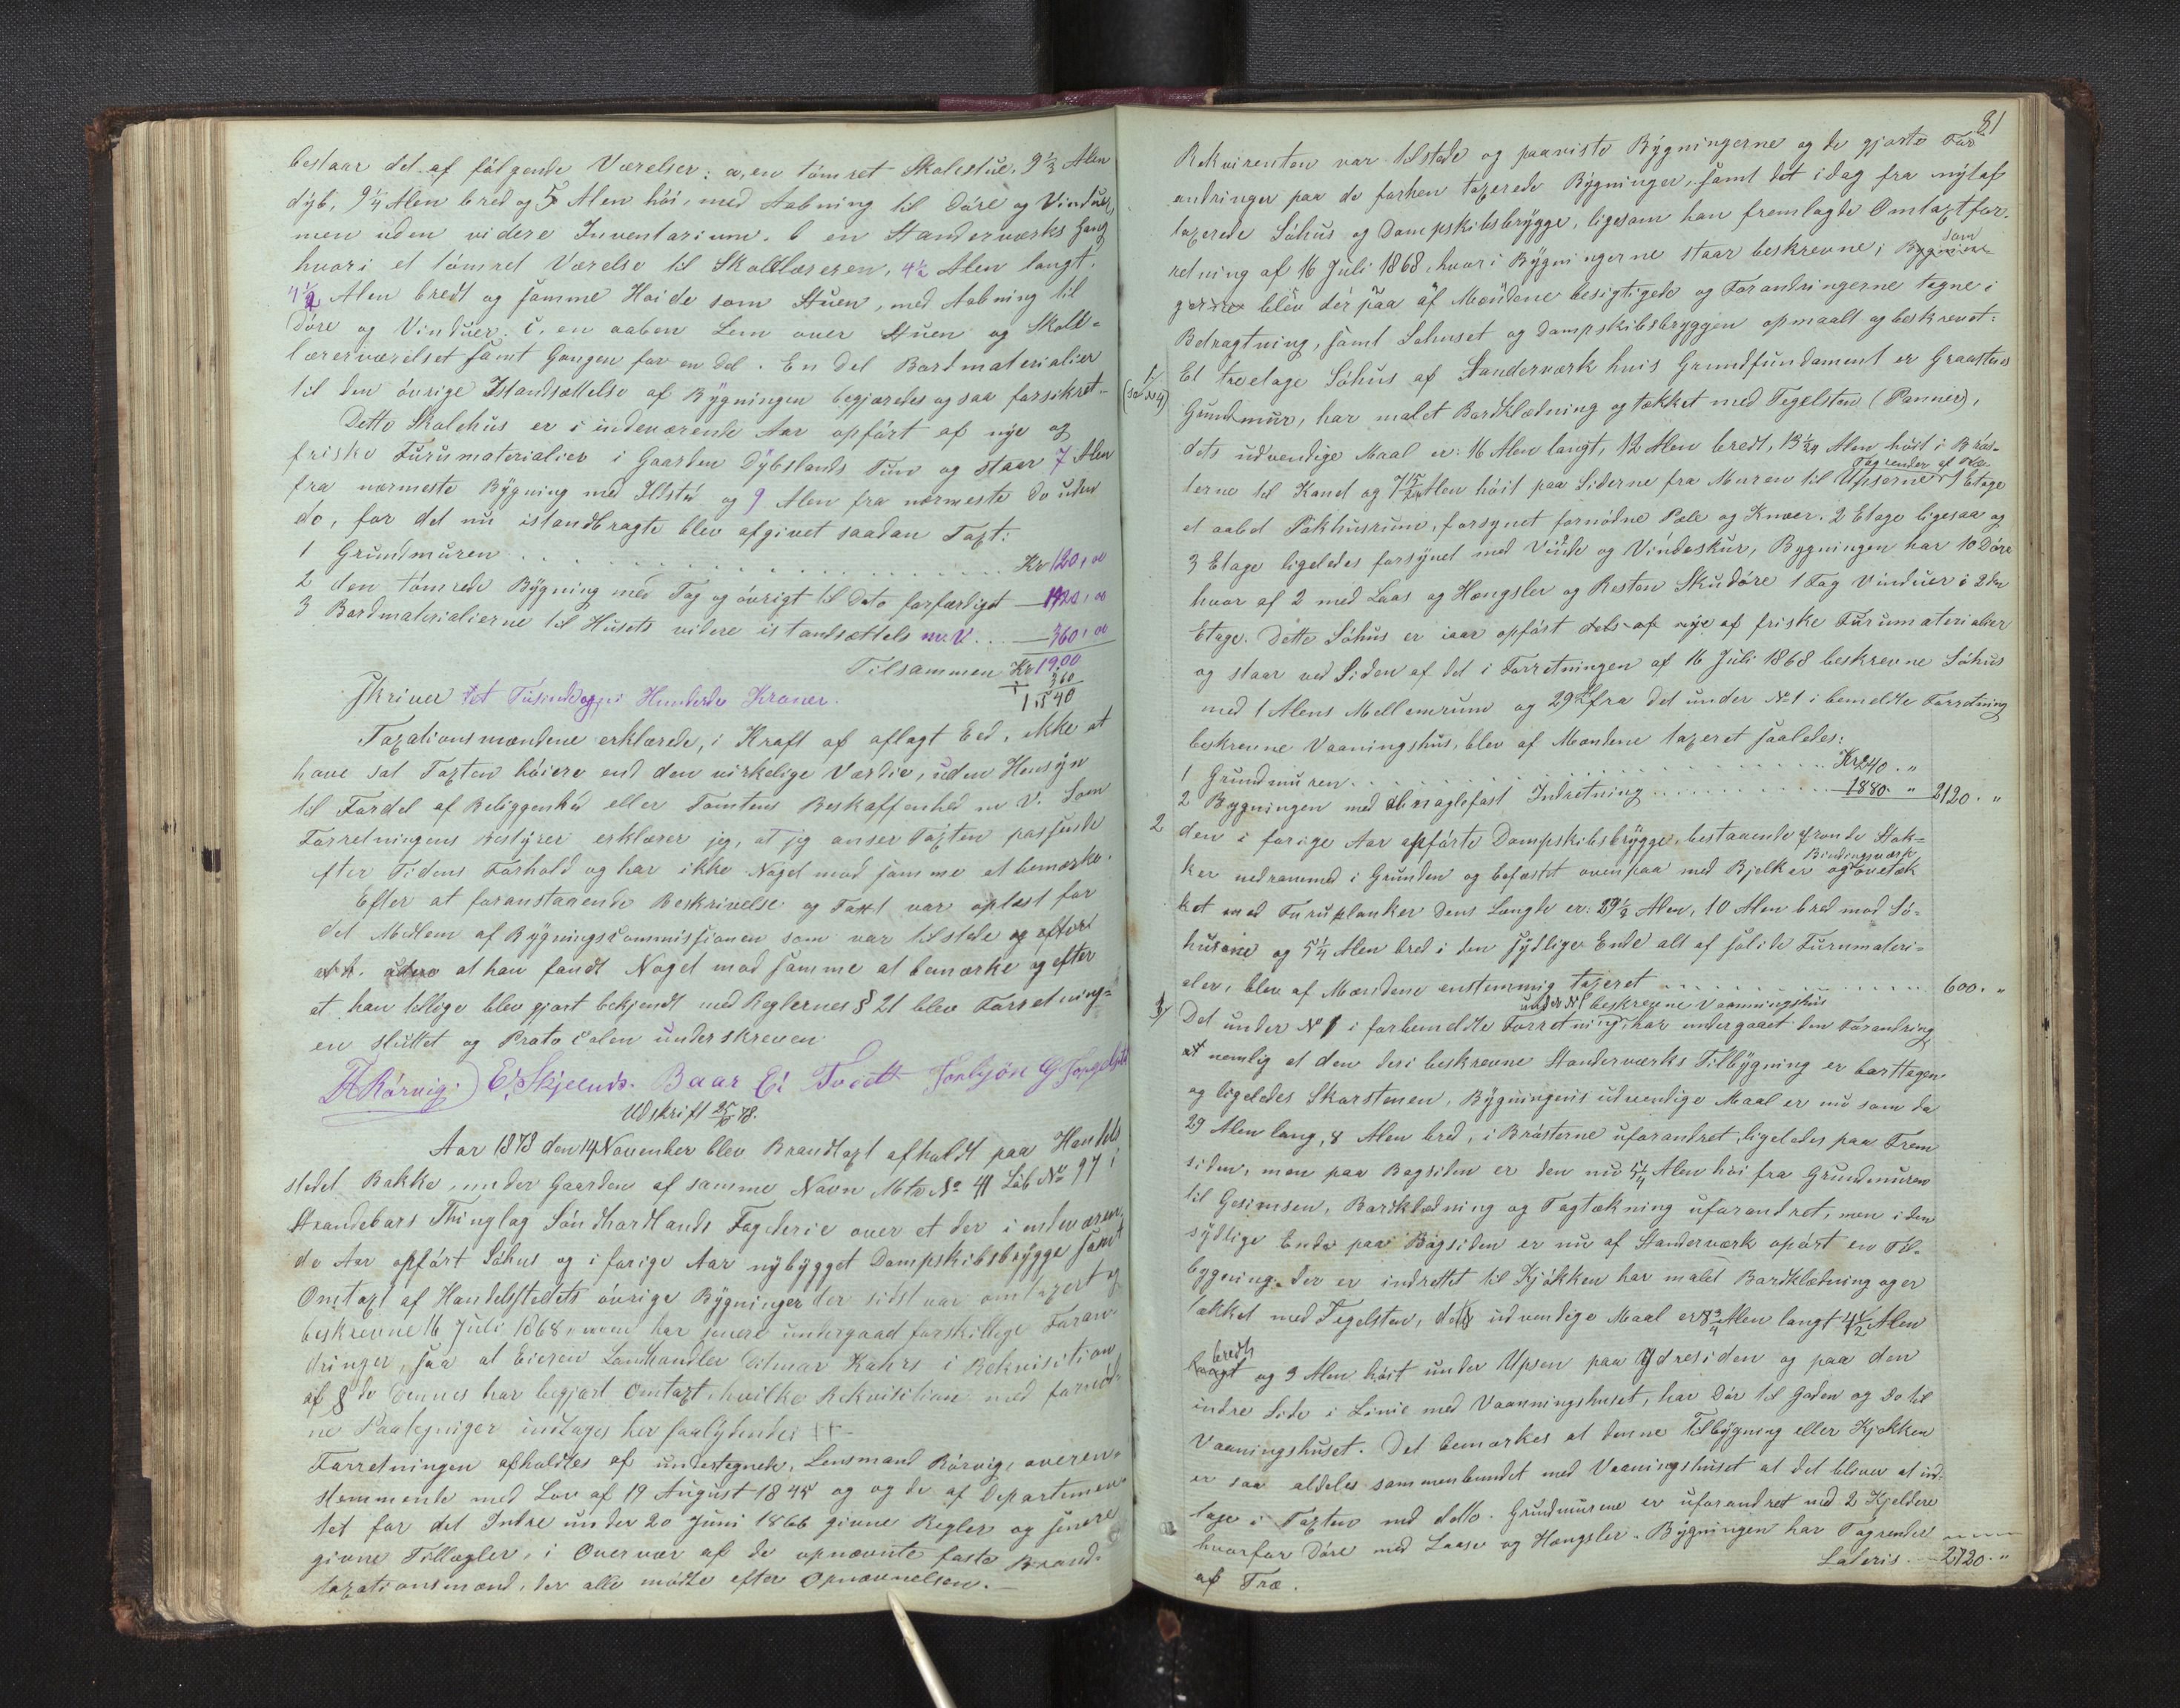 bestaar det af følgende Værelser: a, en tømret Skolestue, 9 1/3 Alen
dyb, 9 1/4 Alen bred og 5 Alen høi, med Aabning til Døre og Vinduer,
men uden videre Inventarium. b en Standerværks Gang
hvori et tømret Værelse til Skolelæreren, 4 1/2 Alen langt.
4 1/2 Alen bredt og samme Høide som Stuen, med Aabning til
Døre og Vinduer. c, en aaben Lem over Stuen og Skole-
lærerværelset samt Gangen for en Del. En Del Bordmaterialier
til den øvrige Istandsættelse af Bygningen begjæredes ogsaa forsikret.-
Dette Skolehus er i indeværende Aar opført af nye og
friske Furumaterialier i Gaarden Dybslands Tun og staar 7 Alen
fra nærmeste Bygning med Ildsted og 9 Alen fra nærmeste do uden
do, for det nu istandbragte blev afgivet saadan Taxt:
1 Grundmuren . . . Kr 120,00
2 den tømrede Bygning med Tag og øvrigt til Dato forfærdiget — 1420,00
3 Bordmaterialierne til Husets videre istandsættels m.V. . . — 360,00
Tilsammen Kr 1900
360
1540
Skriver Et Tusinde og ni Hundrede Kroner.
Taxationsmændene erklærede, i Kraft af aflagt Eed, ikke at
have sat Taxten høiere end den virkelige Værdie, uden Hensyn
til Fordel af Beliggenhed eller Tomtens Beskaffenhed m V. Som
Forretningens Bestyrer erklærer jeg, at jeg anser Taxten passende
efter Tidens Forhold og har ikke Noget mod samme at bemærke.
Efter at foranstaaende Beskrivelse og Taxt var oplæst for
det Medlem af Bygningscommissionen som var tilstede og efter
uden at han fandt Noget mod samme at bemærke og efter
at han tillige blev gjort bekjendt med Reglernes § 21 blev Forretning-
en sluttet og Protocolen underskreven
H Rørvig E. Skjelnes. Baar Ei Tveit Torbjøn G
Udskrift 25/10 78.
Aar 1878 den 14 November blev Brandtaxt afholdt paa Handels
stedet Bakke, under Gaarden af samme Navn Mtr No 41 Løb No 97 i
Strandebarm Thinglag Søndhordlands Fogderie over et der i indeværen-
de Aar opført Søhus og i forige Aar nybygget Dampskibsbrygge samt
Omtaxt af Handelsstedets øvrige Bygninger der sidst var omtaxert og
beskrevne 16 Juli 1868, men har senere undergaaet forskillige Foran-
dringer, saa at Eieren Landhandler Ditmar Kahrs i Rekvisition
af 8 de Dennes har begjært Omtaxt, hvilke Rekvisition med fornød-
ne Paategninger indtages her saalydende:
Forretningen afholdtes af undertegnede, Lensmand Rørvig, overen-
stemmende med Lov af 19 August 1845 og og de af Departemen-
tet for det Indre under 20 Juni 1866 givne Regler og senere
givne Tillægler, i Overvær af de opnævnte faste Brand-
taxationsmænd, der alle mødte efter Opnævnelsen.-
81
Rekvirenten var tilstede og paaviste Bygningerne og de gjorte For-
andringer paa de forhen taxerede Bygninger, samt det idag fra nyt af
taxerede Søhus og Dampskibsbrygge, ligesom han fremlagde Omtaxtfor-
retning af 16 Juli 1868, hvori Bygningerne staar beskrevne; Bygnin som
gerne blev derpaa af Mændene besigtigede og Forandringerne tagne i
Betragtning, samt Søhuset og Dampskibsbryggen opmaalt og beskrevet:
1/ Et treetage Søhus af Standerværk hvis Grundfundament er Graastens
Grundmur, har malet Bordklædning og tækket med Tegelsten (Panner),
dets udvendige Maal er: 16 Alen langt, 12 Alen bredt, 13 1/24 Alen høit i Brøs-
terne til Kand og 7 15/24 Alen høit paa Siderne fra Muren til Upserne Tagrender af Træ 1 Etage
et aabet Pakhusrum, forsynet fornødne Pæle og Knæer. 2 Etage ligesaa og
3 Etage ligeledes forsynet med Vinde og Vindeskur, Bygningen har 10 Døre
hvor af 2 med Laas og Hængsler og Resten Skudøre 1 Fag Vinduer i 2den
Etage. Dette Søhus er iaar opført dels af nye af friske Furumaterialier
og staar ved Siden af det i Forretningen af 16 Juli 1868 beskrevne Søhus
med 1 Alens Mellemrum og 29 Al fra det under No 1 i bemeldte Forretning
beskrevne Vaaningshus, blev af Mændene taxeret saaledes:
1 Grundmuren . . . Kr 240. "
2 Bygningen med al naglefast Indretning . . . 1880. " 2120. "
2 den i forige Aar opførte Dampskibsbrygge, bestaaende af runde Stok-
ker nedrammed i Grunden og befæstet ovenpaa med Bjelker og Bindingsværk ovetæk
ket med Furuplanker dens Længde er: 29 1/2 Alen, 10 Alen bred mod Sø-
husene og 5 1/4 Alen bred i den sydlige Ende alt af solide Furumateri-
aler, blev af Mændene enstemmig taxeret . . . 600. "
3/ Det under No 1 i forbemeldte Forretning under No 1 beskrevne Vaaningshus har undergaaet den Forandring
at nemlig at den deri beskrevne Standerværks Tilbygning er borttagen
og ligeledes Skorstenen, Bygningens udvendige Maal er nu som da
29 Alen lang, 8 Alen bred, i Brøsterne uforandret, ligeledes paa Frem
siden, men paa Bagsiden er den nu 5 1/4 Alen høi fra Grundmuren
til Gesimsen, Bordklædning og Tagtækning uforandret, men i den
sydlige Ende paa Bagsiden er nu af Standerværk opført en Til-
bygning. Der er indrettet til Kjøkken har malet Bordklædning og er
tækket med Tegelsten, dets udvendige Maal er 8 3/4 Alen langt 4 1/2 Alen
bredt og 3 Alen høit under Upsen paa Ydresiden og paa den
indre Side i Linie med Vaaningshuset, har Dør til Gaden og do til
Vaaningshuset. Det bemærkes at denne Tilbygning eller Kjøkken
er saa aldeles sammenbundet med Vaaningshuset at det bliver at ind-
tage i Taxten med dette. Grundmurene er uforandret med 2 Kjeldere
hvorfor Døre med Laase og Hængsler. Bygningen har Tagrender
af Træ. Lateris. 2720. "